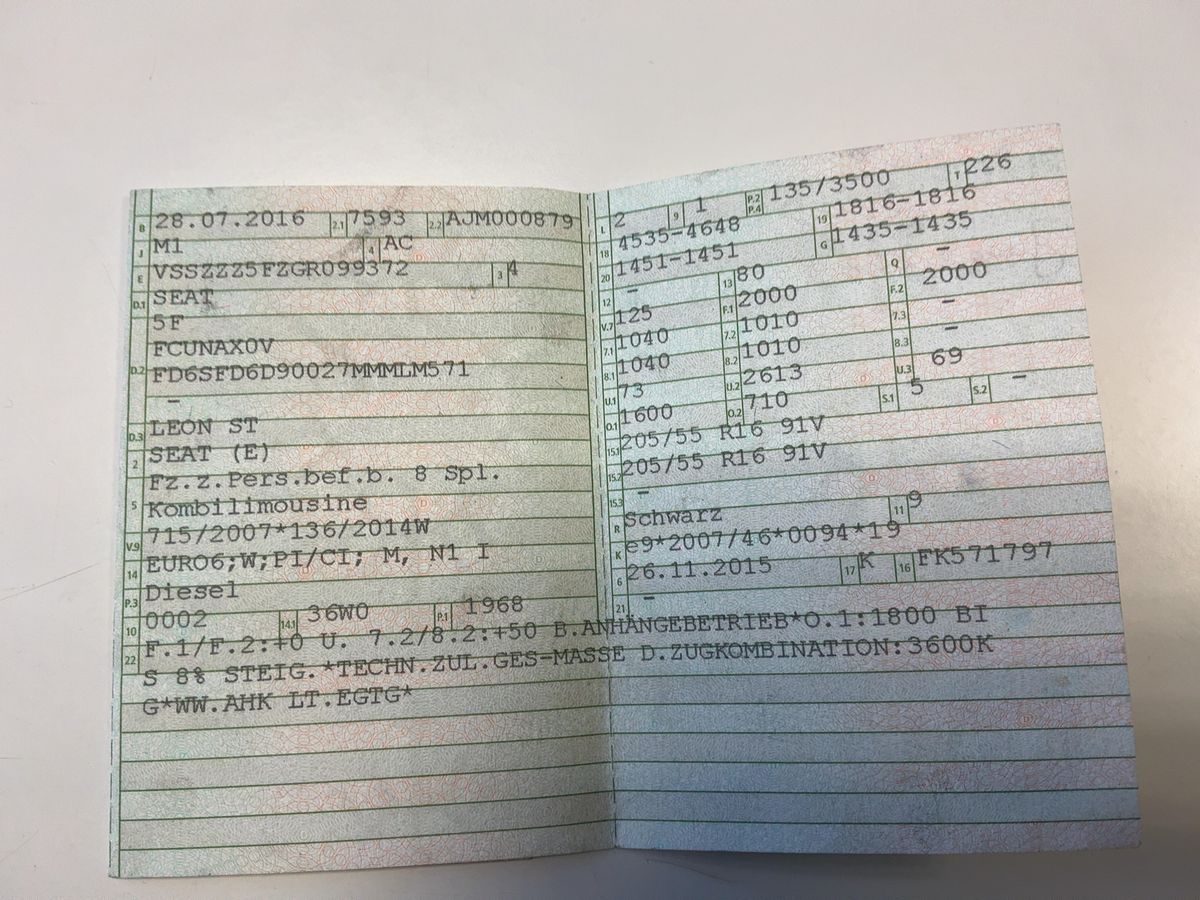 B 28.07.2016 2.1 7593 2.2 AJM000879
J M1 4 AC
E VSSZZZ5FZGR099372 3 4
D.1 SEAT
5F
D.2 FCUNAX0V
FD6SFD6D90027MMMLM571
–
D.3 LEON ST
2 SEAT (E)
5 Fz.z.Pers.bef.b. 8 Spl.
Kombilimousine
V.9 715/2007*136/2014W
14 EURO6;W;PI/CI; M, N1 I
P.3 Diesel
10 0002 14.1 36W0 P.1 1968
L 2 9 1 P.2 P.4 135/3500 T 226
18 4535-4648 19 1816-1816
20 1451-1451 G 1435-1435
12 – 13 80 Q –
V.7 125 F.1 2000 F.2 2000
7.1 1040 7.2 1010 7.3 –
8.1 1040 8.2 1010 8.3 –
U.1 73 U.2 2613 U.3 69
O.1 1600 O.2 710 S.1 5 S.2 –
15.1 205/55 R16 91V
15.2 205/55 R16 91V
15.3 –
R Schwarz 11 9
K e9*2007/46*0094*19
6 26.11.2015 17 K 16 FK571797
21 –
22 F.1/F.2:+0 U. 7.2/8.2:+50 B.ANHÄNGEBETRIEB*O.1:1800 BI
S 8% STEIG.*TECHN.ZUL.GES-MASSE D.ZUGKOMBINATION:3600K
G*WW.AHK LT.EGTG*